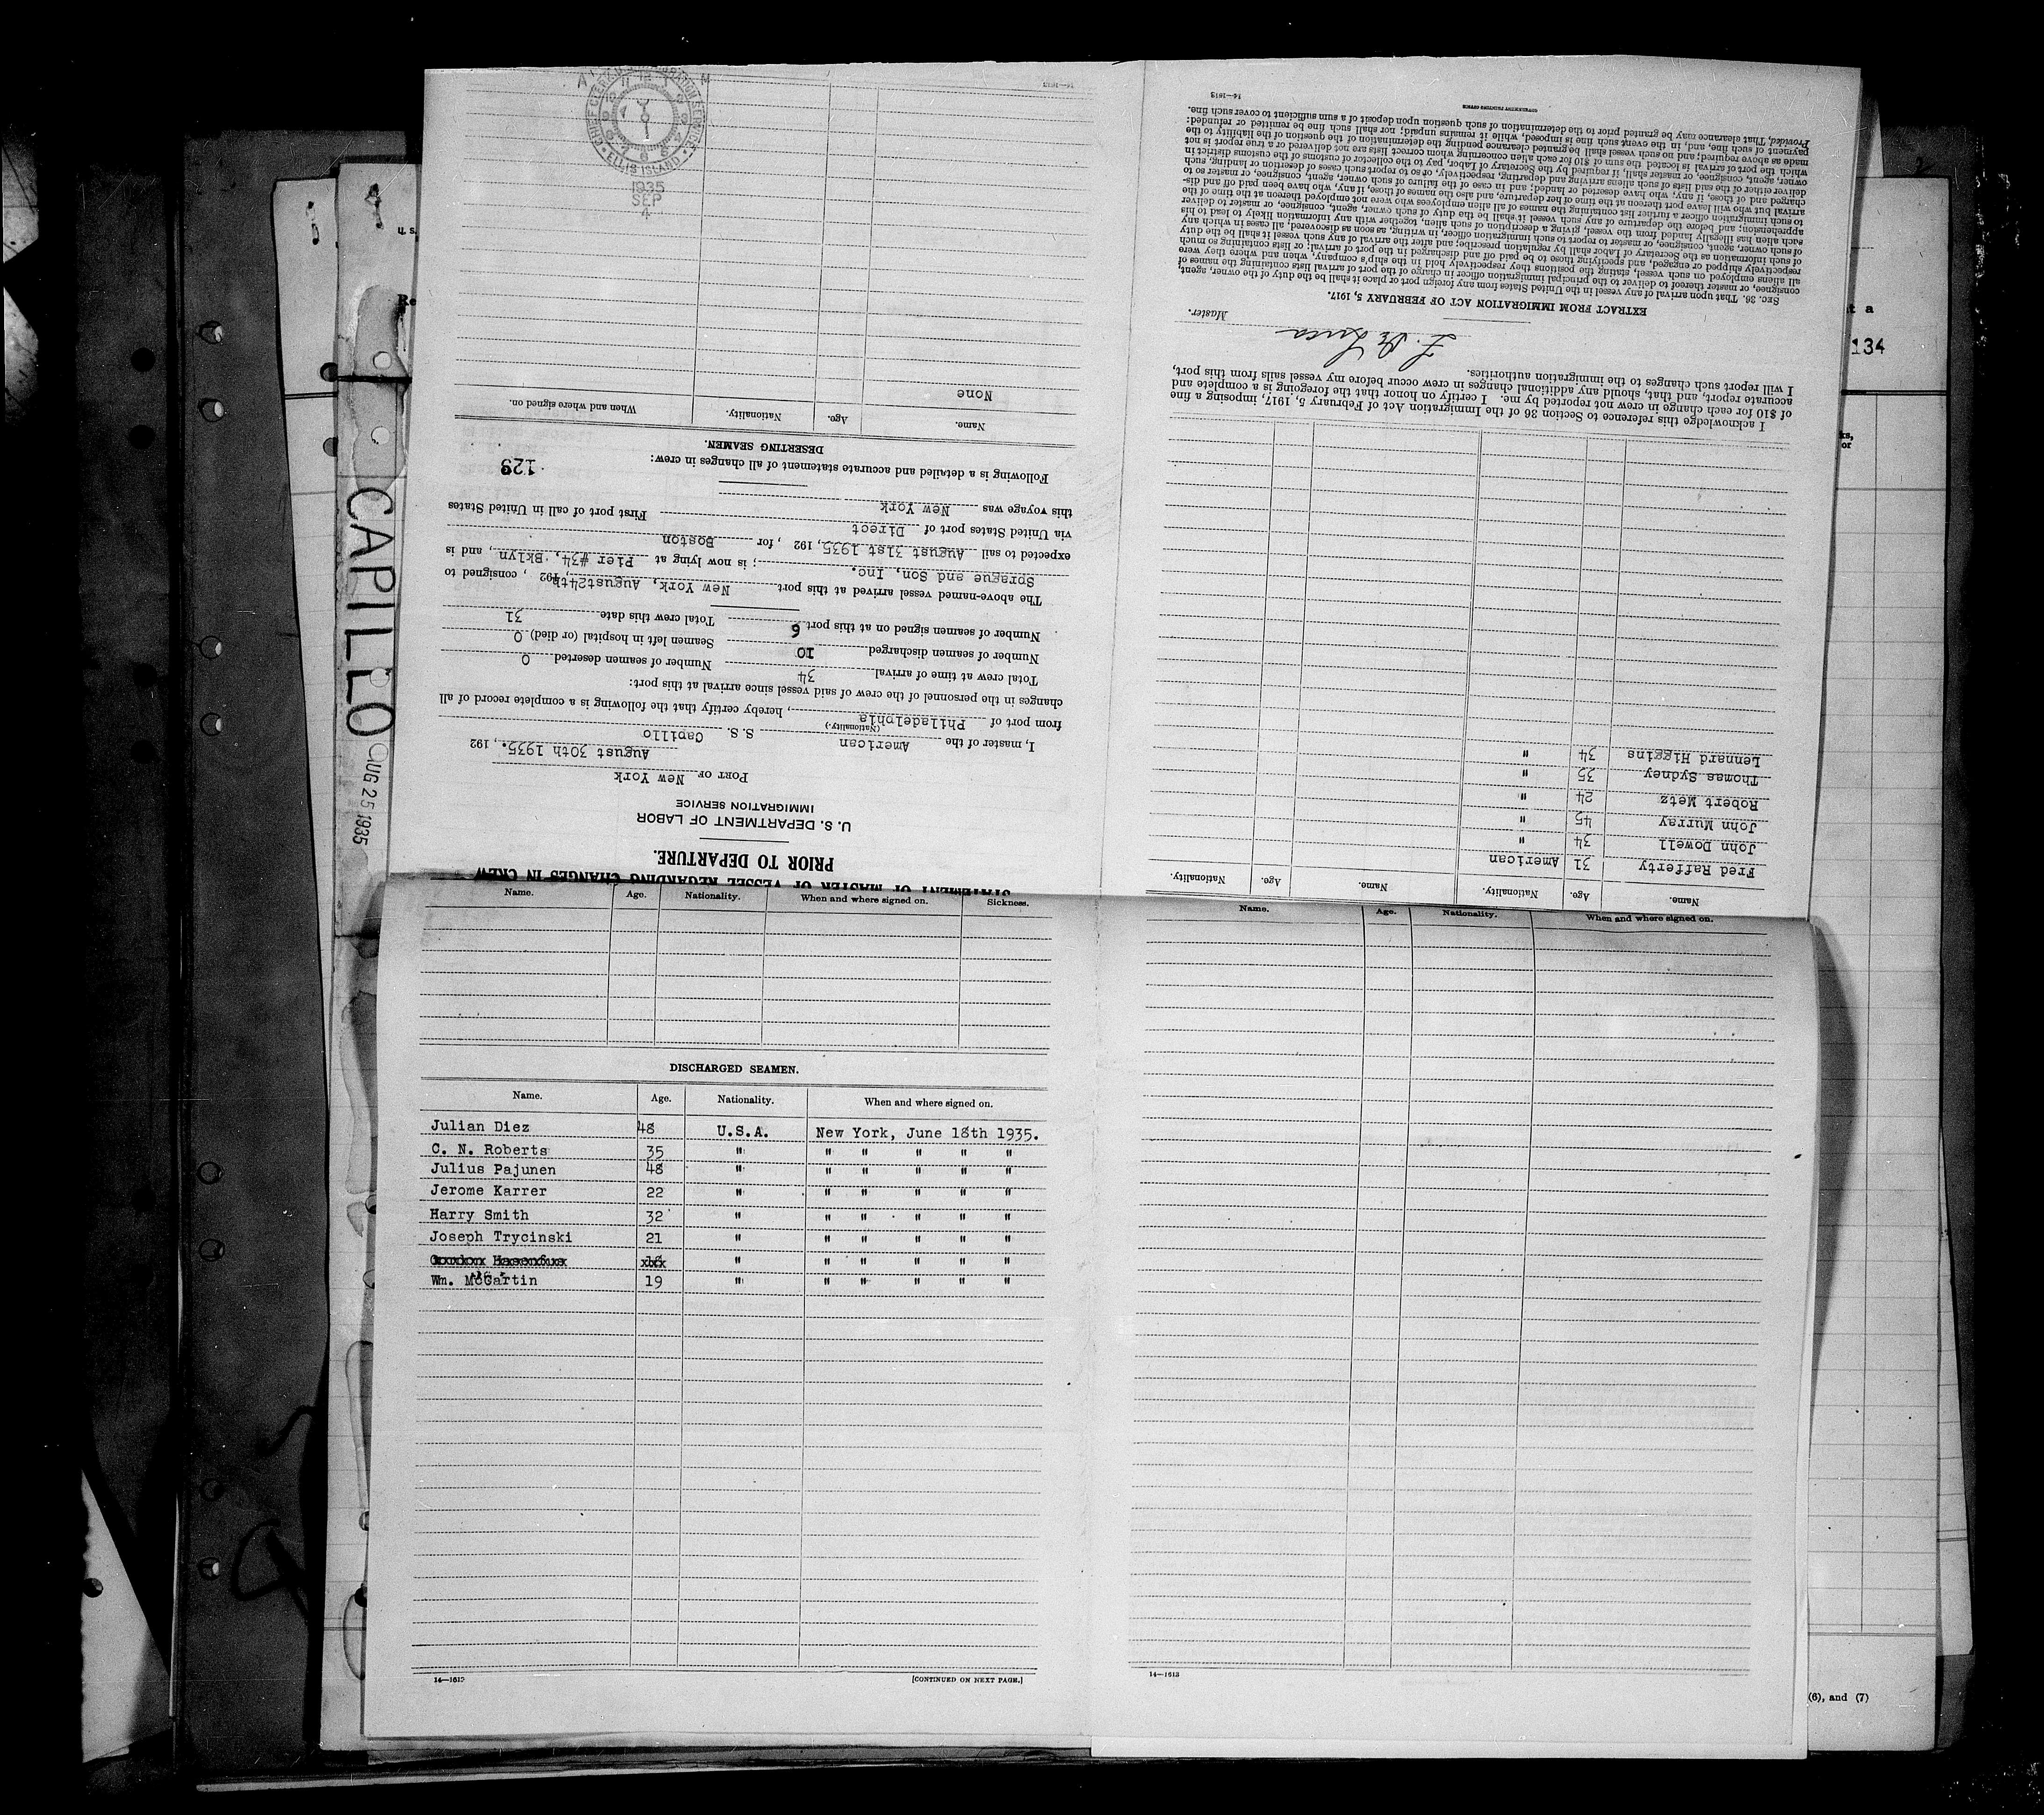 STATEMENT OF MASTER OF VESSEL REGARDING CHANGES IN CREW
PRIOR TO DEPARTURE.
U. S. DEPARTMENT OF LABOR
IMMIGRATION SERVICE
PORT OF New York
August 30th 1935., 192
I, master of the American S. S. Capillo
(Nationality.)
from port of Philadelphia, hereby certify that the following is a complete record of all
changes in the personnel of the crew of said vessel since arrival at this port:
Total crew at time of arrival 34 Number of seamen deserted 0
Number of seamen discharged 10 Seamen left in hospital (or died) 0
Number of seamen signed on at this port 6 Total crew this date 31
The above-named vessel arrived at this port New York, August 24th, 192 , consigned to
Sprague and Son, Inc. ; is now lying at Pier #34, Bklyn, and is
expected to sail August 31st 1935, 192 , for Boston
via United States port of Direct First port of call in United States
this voyage was New York
Following is a detailed and accurate statement of all changes in crew:
129
DESERTING SEAMEN.
Name. Age. Nationality. When and where signed on.
None
CHIEF CLERK U.S. IMMIGRATION SERVICE
ELLIS ISLAND
A M
1935
SEP
4
14—1613
Name. Age. Nationality. Name. Age. Nationality.
Fred Rafferty 31 American
John Dowell 34 "
John Murray 45 "
Robert Metz 24 "
Thomas Sydney 35 "
Lennard Higgins 34 "
I acknowledge this reference to Section 36 of the Immigration Act of February 5, 1917, imposing a fine
of $10 for each change in crew not reported by me. I certify on honor that the foregoing is a complete and
accurate report, and that, should any additional changes in crew occur before my vessel sails from this port,
I will report such changes to the immigration authorities.
F. De Luca
Master.
EXTRACT FROM IMMIGRATION ACT OF FEBRUARY 5, 1917.
SEC. 36. That upon arrival of any vessel in the United States from any foreign port or place it shall be the duty of the owner, agent,
consignee, or master thereof to deliver to the principal immigration officer in charge of the port of arrival lists containing the names of
all aliens employed on such vessel, stating the positions they respectively hold in the ship's company, when and where they were
respectively shipped or engaged, and specifying those to be paid off and discharged in the port of arrival; or lists containing so much
of such information as the Secretary of Labor shall by regulation prescribe; and after the arrival of any such vessel it shall be the duty
of such owner, agent, consignee, or master to report to such immigration officer, in writing, as soon as discovered, all cases in which any
such alien has illegally landed from the vessel, giving a description of such alien, together with any information likely to lead to his
apprehension; and before the departure of any such vessel it shall be the duty of such owner, agent, consignee, or master to deliver
to such immigration officer a further list containing the names of all alien employees who were not employed thereon at the time of the
arrival but who will leave port thereon at the time of her departure, and also the names of those, if any, who have been paid off and dis-
charged and of those, if any, who have deserted or landed; and in case of the failure of such owner, agent, consignee, or master so to
deliver either of the said lists of such aliens arriving and departing, respectively, or so to report such cases of desertion or landing, such
owner, agent, consignee, or master shall, if required by the Secretary of Labor, pay to the collector of customs of the customs district in
which the port of arrival is located the sum of $10 for each alien concerning whom correct lists are not delivered or a true report is not
made as above required; and no such vessel shall be granted clearance pending the determination of the question of the liability to the
payment of such fine, and, in the event such fine is imposed, while it remains unpaid; nor shall such fine be remitted or refunded:
Provided, That clearance may be granted prior to the determination of such question upon deposit of a sum sufficient to cover such fine.
14—1613 GOVERNMENT PRINTING OFFICE
CAPILLO AUG 25 1935
U. S.
Re
t a
134
ks,
or
Name. Age. Nationality. When and where signed on. Sickness.
DISCHARGED SEAMEN.
Name. Age. Nationality. When and where signed on.
Julian Diez 48 U.S.A. New York, June 18th 1935.
C. N. Roberts 35 " " " " " "
Julius Pajunen 48 " " " " " "
Jerome Karrer 22 " " " " " "
Harry Smith 32 " " " " " "
Joseph Trycinski 21 " " " " " "
Gordon Hasenfus " " " " " "
Wm. McGartin 19 " " " " " "
14—1613 [CONTINUED ON NEXT PAGE.]
Name. Age. Nationality. When and where signed on.
14—1613
(6), and (7)